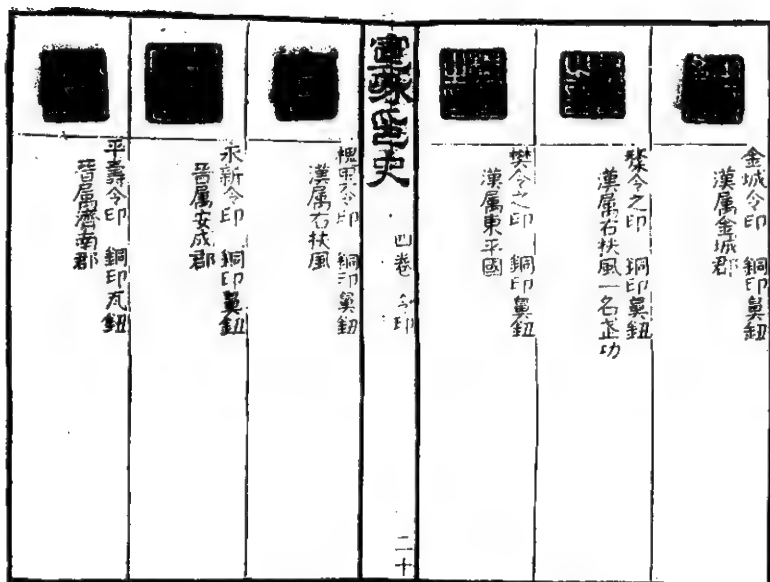 金城令印 銅印鼻鈕
漢属金城郡
令之印 銅印鼻鈕
漢属右扶風一名武功
樊令之印 銅印鼻鈕
漢属東平國
印史
四卷 令印
二十
槐里令印 銅印鼻鈕
漢属右扶風
永新令印 銅印鼻鈕
晉属安成郡
平壽令印 銅印瓦鈕
晉属濟南郡